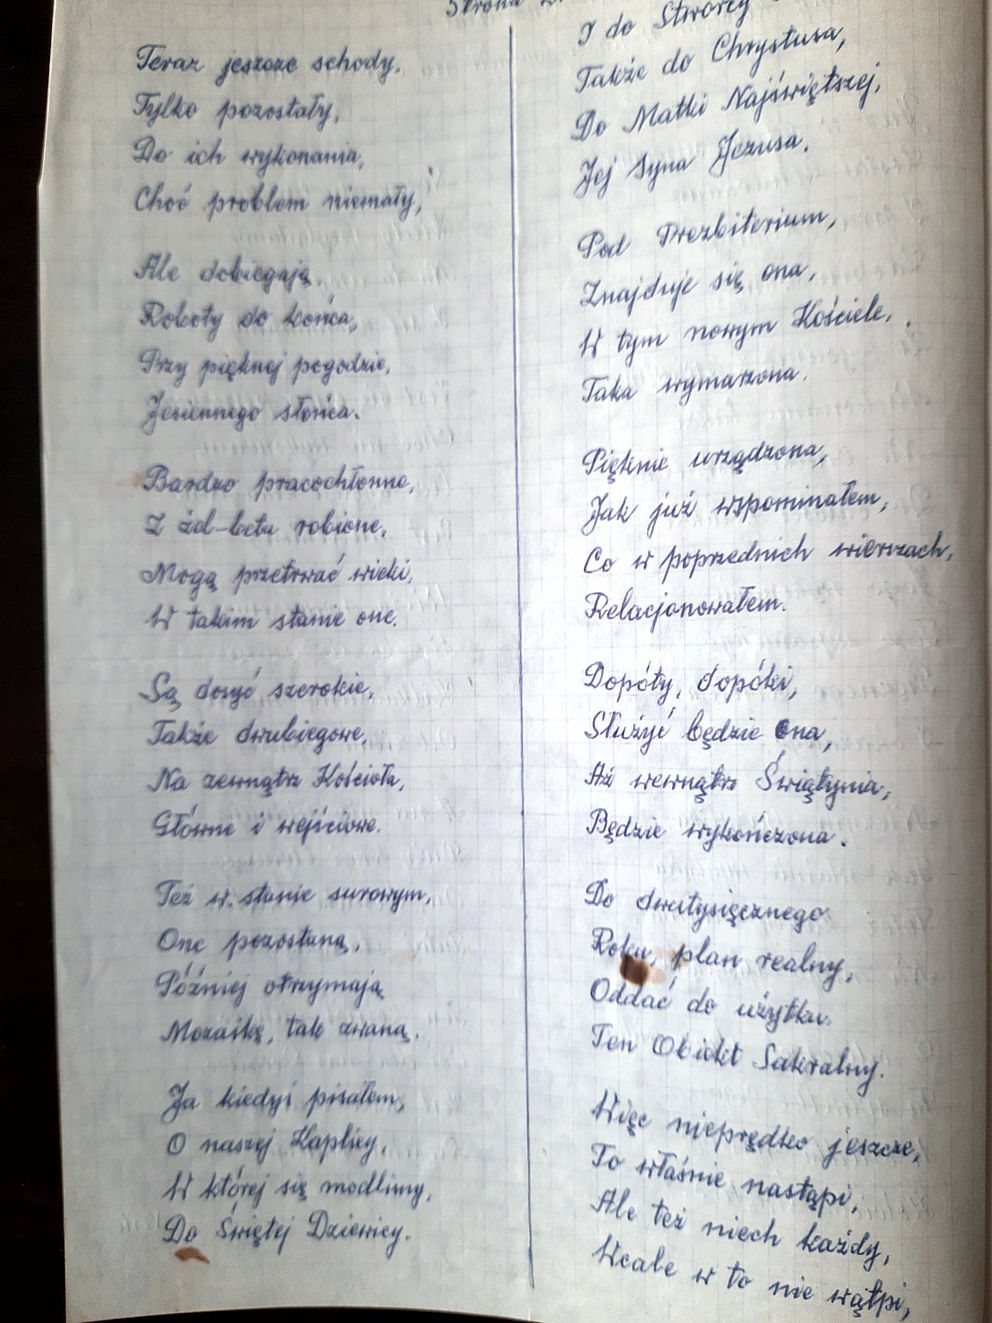 Strona
Teraz jeszcze schody,
Tylko pozostały,
Do ich wykonania,
Choć problem niemały,
Ale dobiegają,
Roboty do końca,
Przy pięknej pogodzie,
Jesiennego słońca.
Bardzo pracochłonne,
Z żel-betu robione,
Mogą przetrwać wieki,
W takim stanie one.
Są dosyć szerokie,
Także dwubiegowe,
Na zewnątrz Kościoła,
Główne i wejściowe.
Też w. stanie surowym,
One pozostaną,
Później otrzymają
Mozaikę, tak zwaną.
Ja kiedyś pisałem,
O naszej Kaplicy,
W której się modlimy,
Do Świętej Dziewicy.
I do Stwórcy
Także do Chrystusa,
Do Matki Najświętszej,
Jej Syna Jezusa.
Pod Prezbiterium,
Znajduje się ona,
W tym nowym Kościele,
Taka wymarzona.
Pięknie urządzona,
Jak już wspominałem,
Co w poprzednich wierszach,
Relacjonowałem.
Dopóty, dopóki,
Służyć będzie ona,
Aż wewnątrz Świątynia,
Będzie wykończona.
Do dwutysięcznego
Roku, plan realny,
Oddać do użytku
Ten Obiekt Sakralny.
Więc nieprędko jeszcze,
To właśnie nastąpi,
Ale też niech każdy,
Wcale w to nie wątpi,